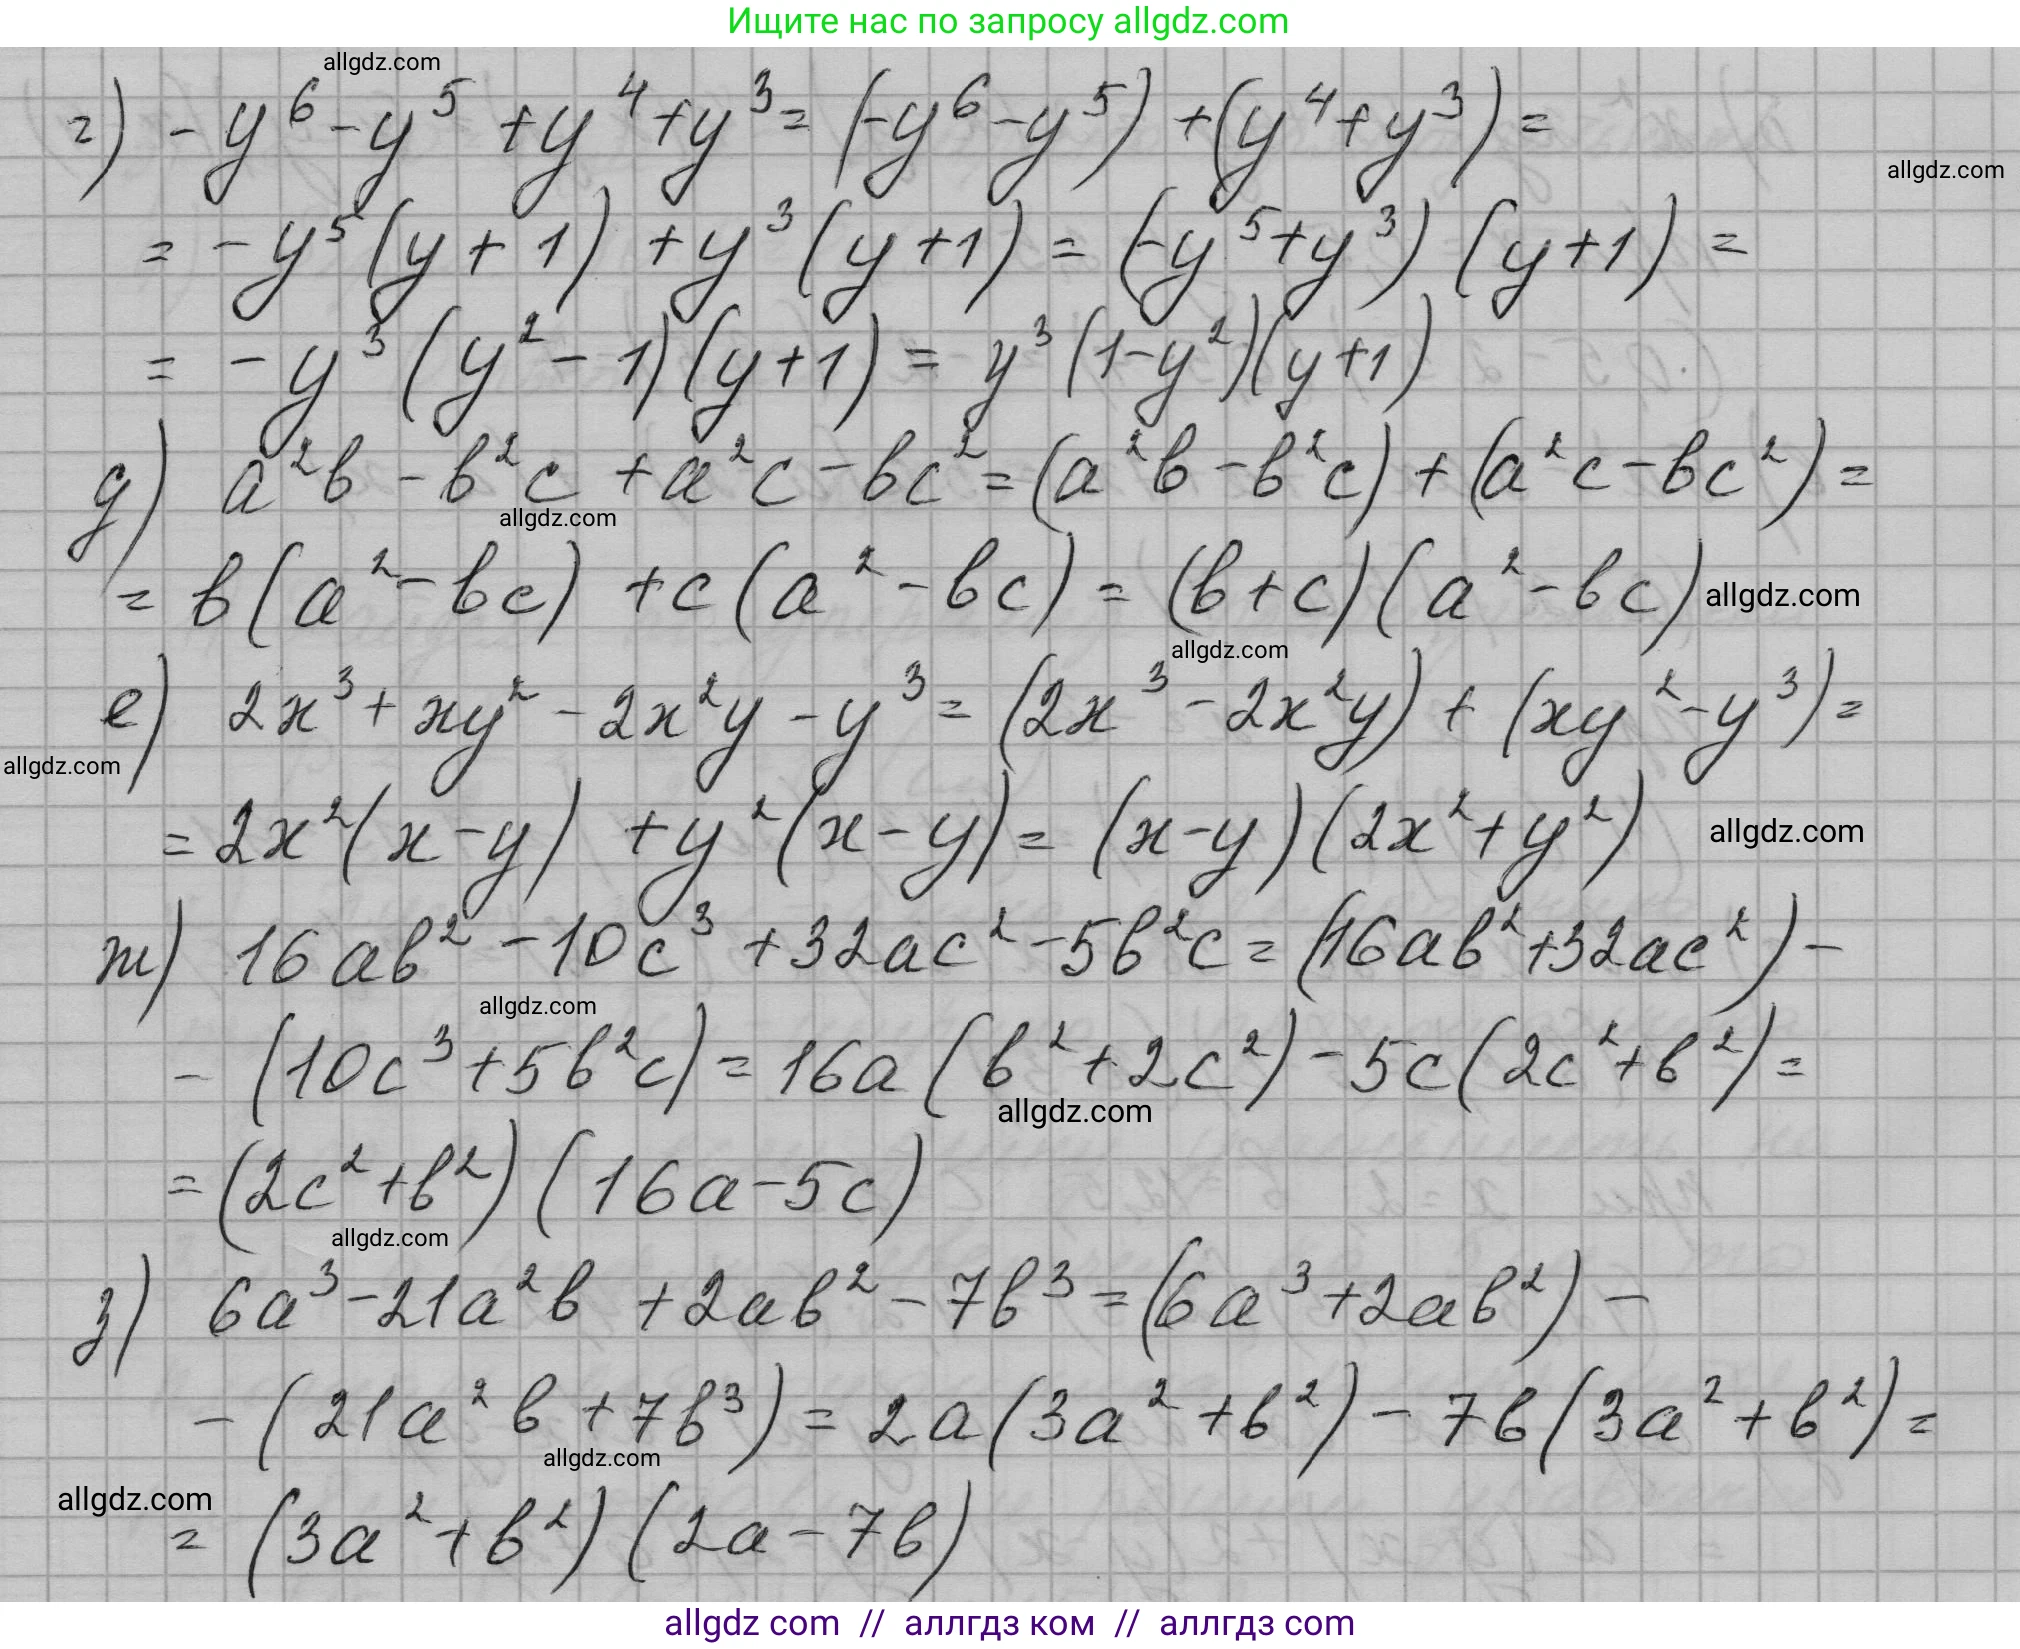 Ищите нас по запросу allgdz.com
allgdz.com
г) -y⁶ - y⁵ + y⁴ + y³ = (-y⁶ - y⁵) + (y⁴ + y³) =
allgdz.com
= -y⁵(y + 1) + y³(y + 1) = (-y⁵ + y³)(y + 1) =
= -y³(y² - 1)(y + 1) = y³(1 - y²)(y + 1)
д) a²b - b²c + a²c - bc² = (a²b - b²c) + (a²c - bc²) =
allgdz.com
= b(a² - bc) + c(a² - bc) = (b + c)(a² - bc) allgdz.com
allgdz.com
е) 2x³ + xy² - 2x²y - y³ = (2x³ - 2x²y) + (xy² - y³) =
allgdz.com
= 2x²(x - y) + y²(x - y) = (x - y)(2x² + y²) allgdz.com
ж) 16ab² - 10c³ + 32ac² - 5b²c = (16ab² + 32ac²) -
allgdz.com
- (10c³ + 5b²c) = 16a(b² + 2c²) - 5c(2c² + b²) =
allgdz.com
= (2c² + b²)(16a - 5c)
allgdz.com
з) 6a³ - 21a²b + 2ab² - 7b³ = (6a³ + 2ab²) -
- (21a²b + 7b³) = 2a(3a² + b²) - 7b(3a² + b²) =
allgdz.com
allgdz.com
= (3a² + b²)(2a - 7b)
allgdz com // аллгдз ком // аллгдз com